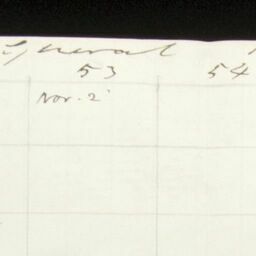 General
53 54
Nov. 2